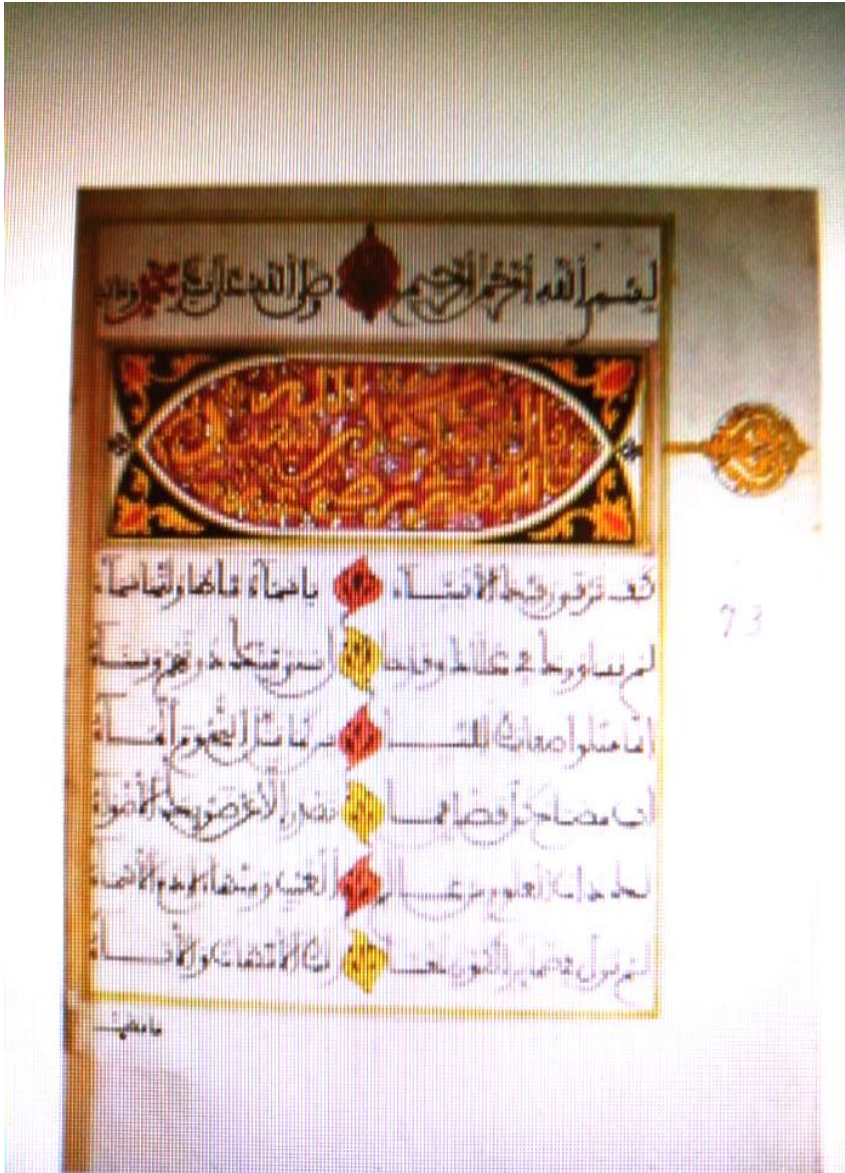 بسم الله الرحمن الرحيم وصلى الله على سيدنا محمد وءاله
كيف ترقى رقيك الأنبياء يا سماء ما طاولتها سماء
لم يساووك في علاك وقد حا ل سنا منك دونهم وسناء
إنما مثلوا صفاتك للنا س كما مثل النجوم الماء
أنت مصباح كل فضل فما تصدر إلا عن ضوئك الأضواء
لك ذات العلوم من عال م الغيب ومنها لآدم الأسماء
لم تزل في ضمائر الكون تختا ر لك الأمهات والآباء
73
ما مضت